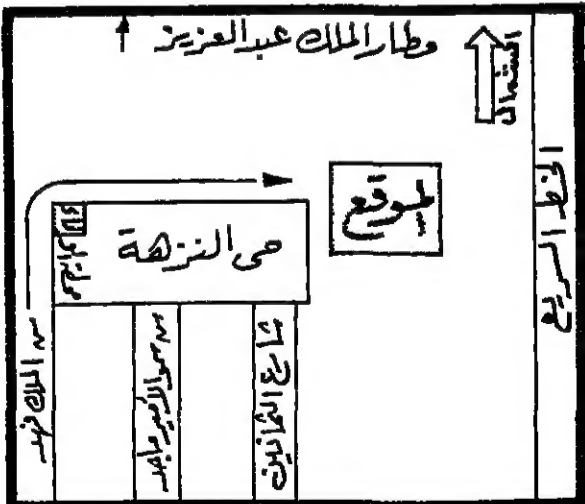 مطار الملك عبدالعزيز
الشمال
الخط السريع
الموقع
حى النزهة
ش الملك فهد
ش سمو الأمير ماجد
شارع الثمانين